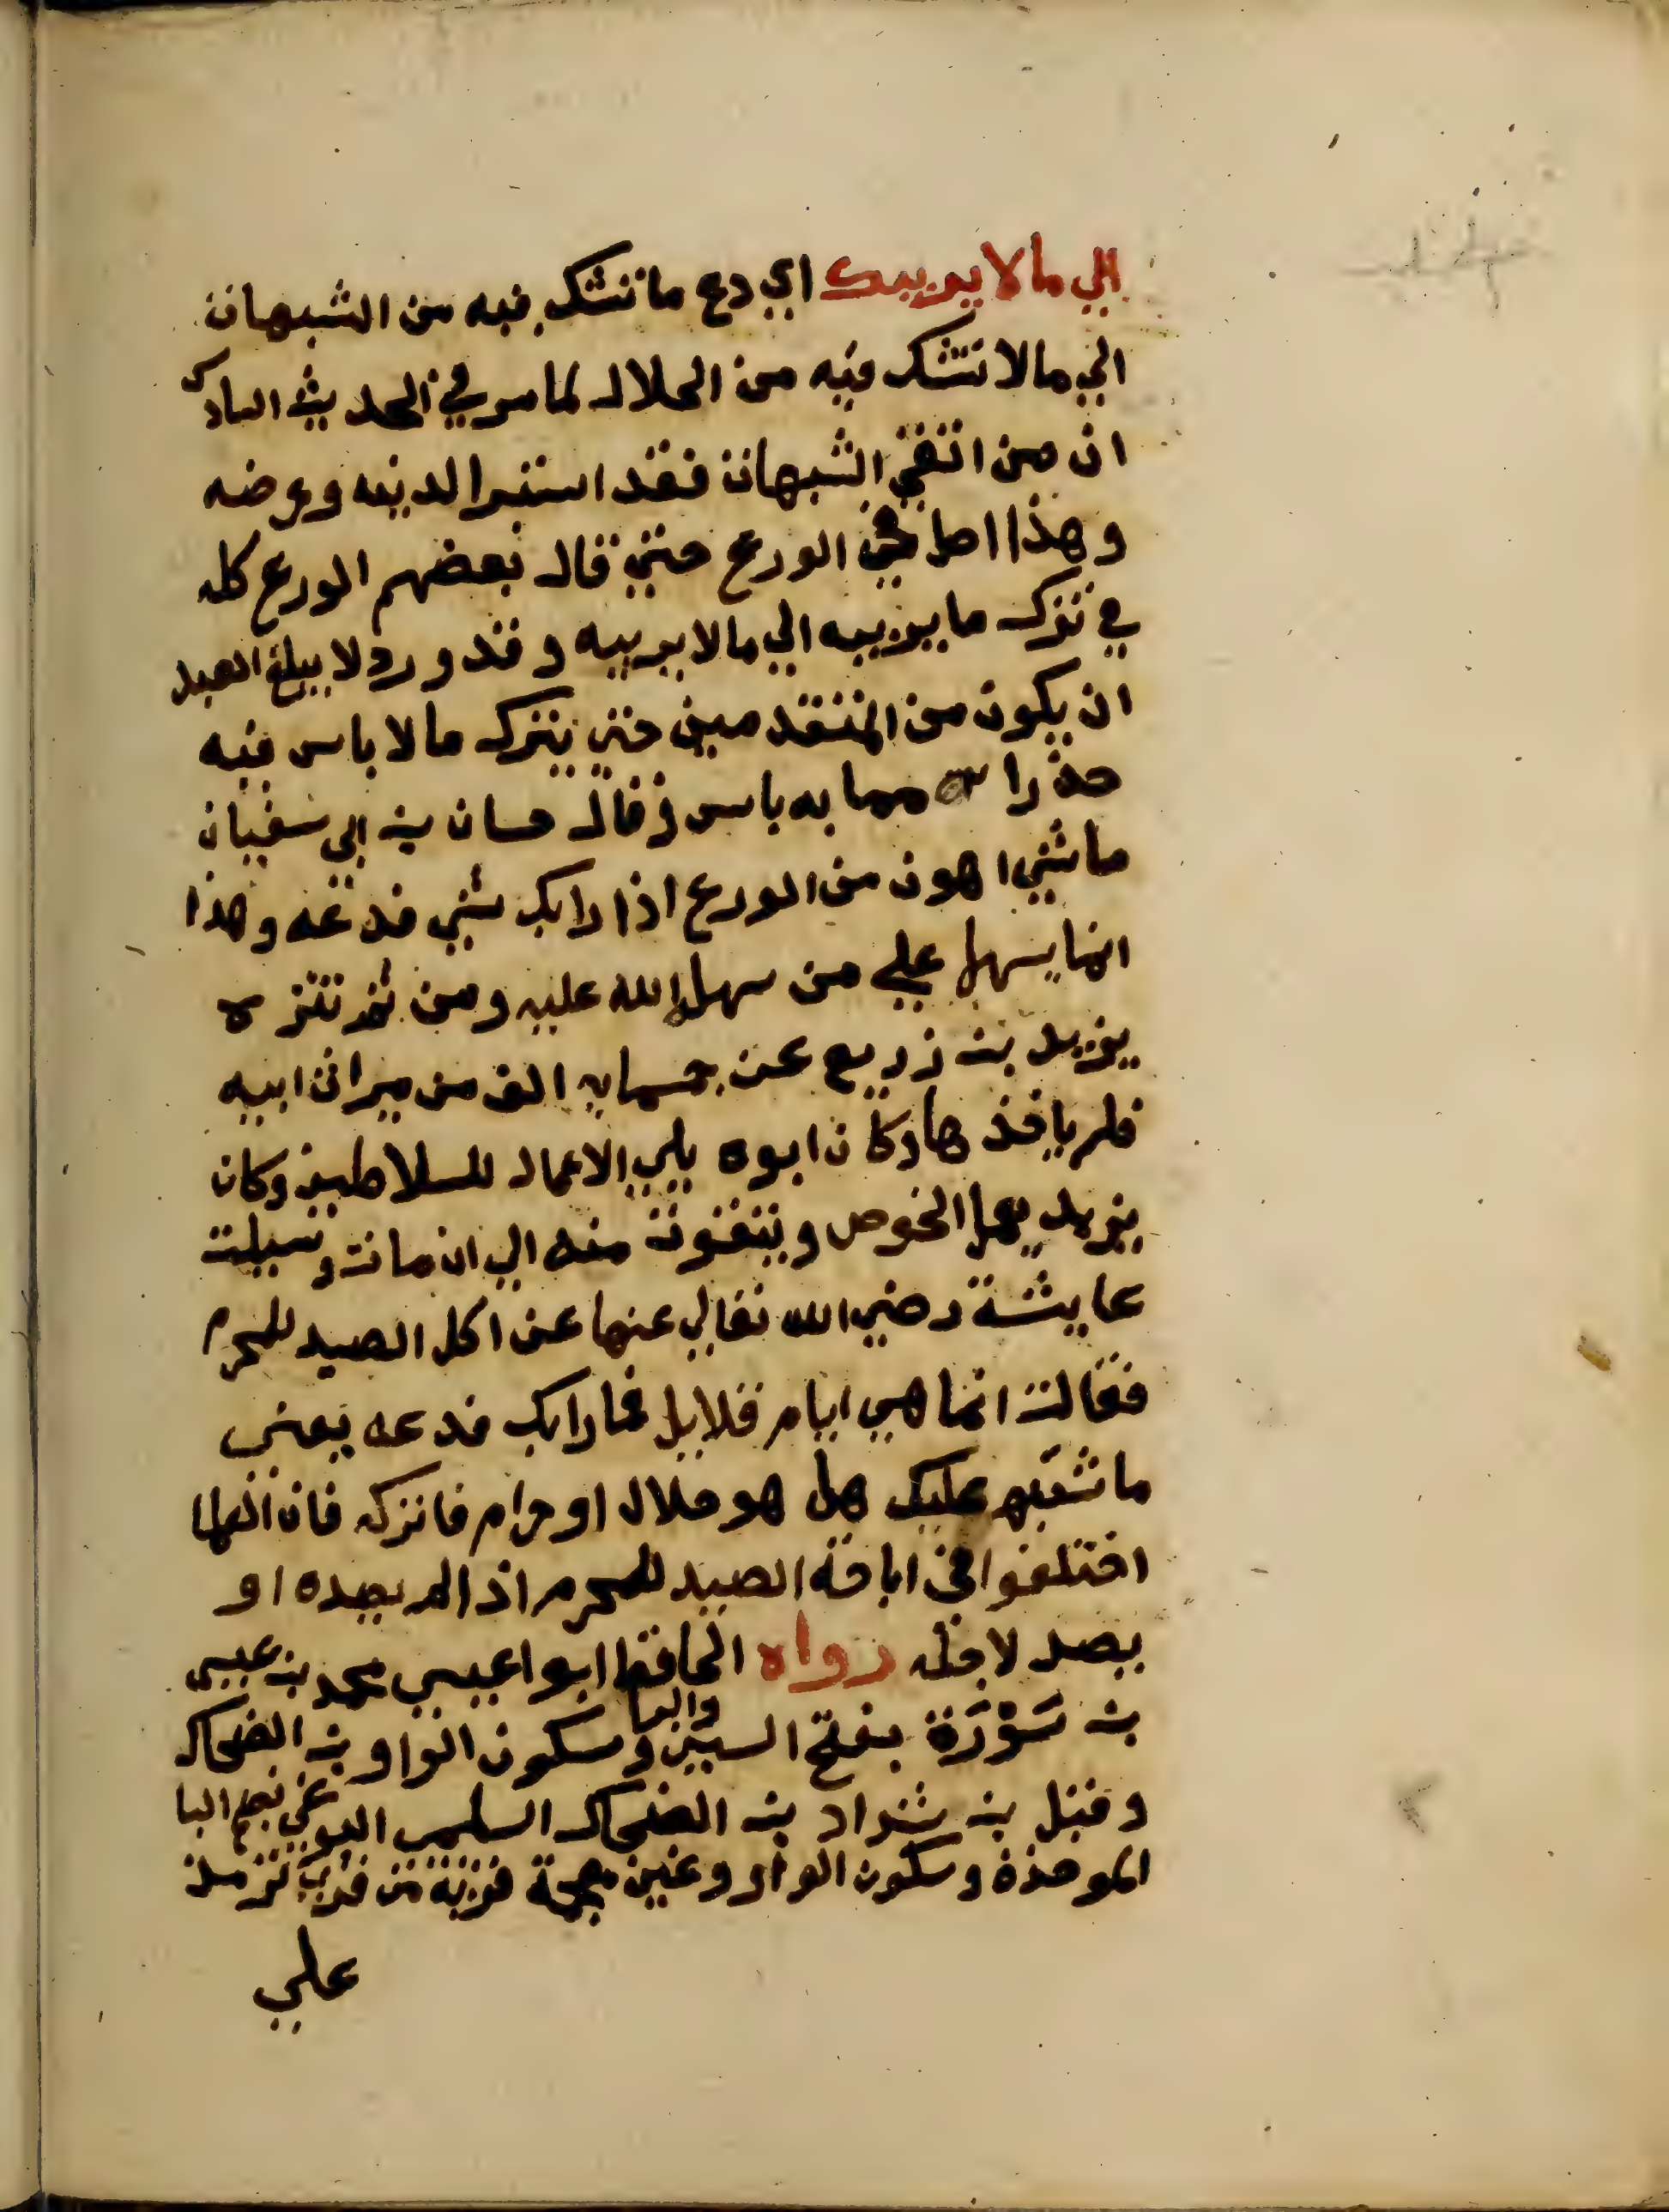 الي ما لا يريبك اي دع ما تشك فيه من الشبهات
الي ما لا تشك فيه من الحلال لما مر في الحديث السادس
ان من اتقي الشبهات فقد استبرا لدينه وعرضه
وهذا اصل في الورع حتي قال بعضهم الورع كله
في ترك ما يريبه الي ما لا يريبه وقد ورد لا يبلغ العبد
ان يكون من المتقدمين حتي يترك ما لا باس فيه
حذرا مما به باس وقال حسان بن ابي سفيان
ما شي اهون من الورع اذا رابك شي فدعه وهذا
انما يسهل علي من سهل الله عليه ومن ثم تنزه
يزيد بن زريع عن خمسماية الف من ميراث ابيه
فلم ياخذها وكان ابوه يلي الاعمال للسلاطين وكان
يزيد يعمل الخوص ويتقوت منه الي ان مات وسيلت
عايشة رضي الله تعالي عنها عن اكل الصيد للمحرم
فقالت انما هي ايام قلايل فما رابك فدعه يعني
ما شتبه عليك هل هو حلال او حرام فاتركه فان العلما
اختلفوا في اباحة الصيد للمحرم اذا لم يصيده او
يصد لاجله رواه الحافظ ابوا عيسي محمد بن عيسي
بن سَوْرَة بفتح السين والرا وسكون الواو بن الضحاك
وقيل بن شداد بن الضحاك السلمي البوغي بضم البا
الموحدة وسكون الواو وغين معجمة قرية من قري ترمذ
علي